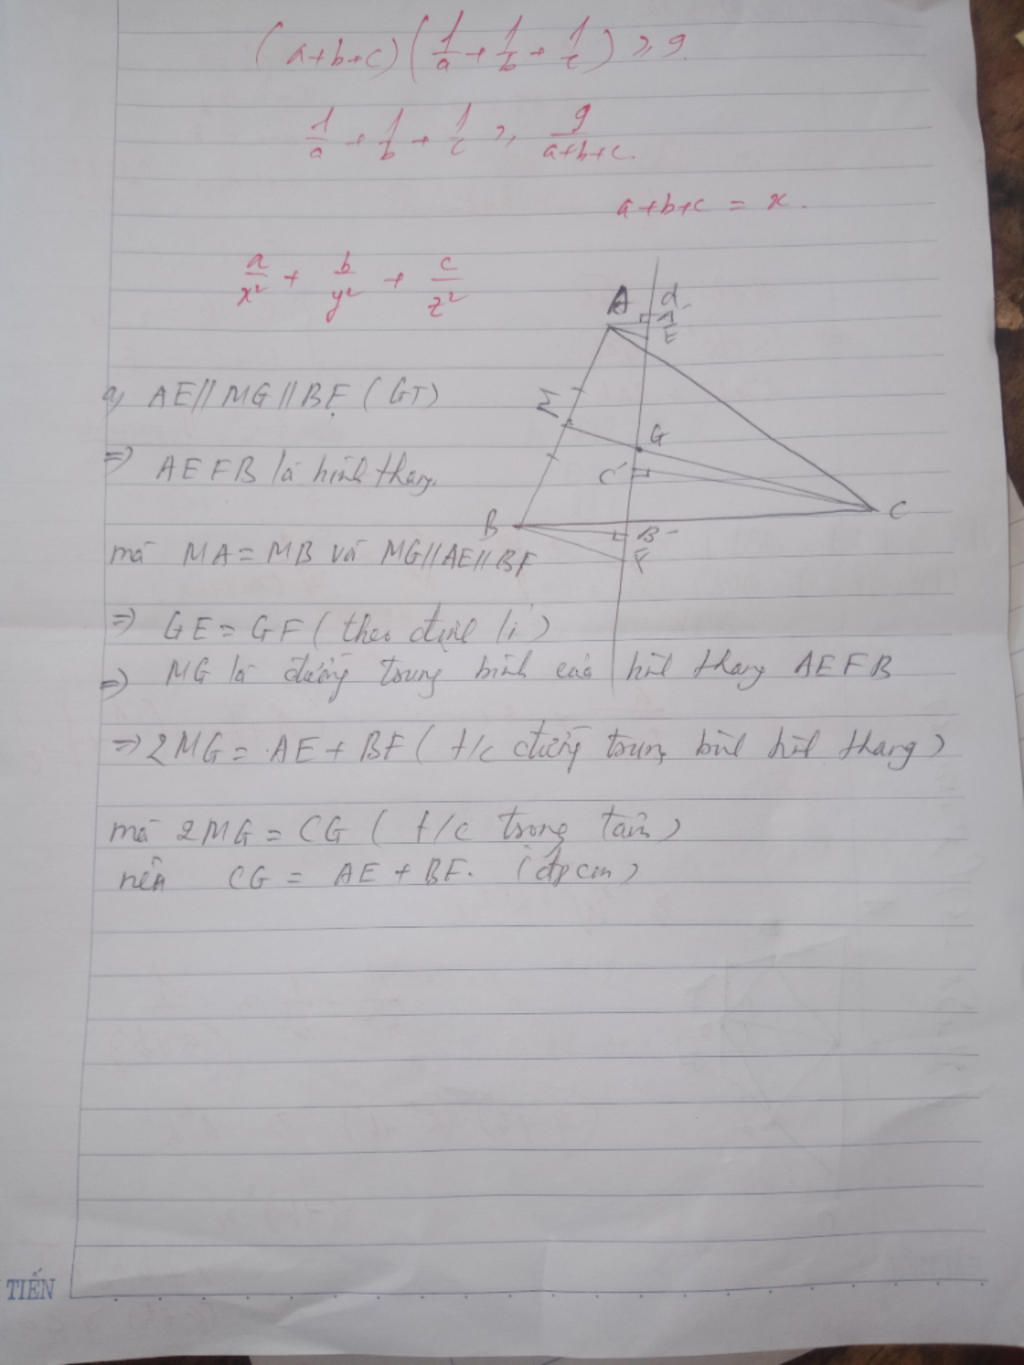 (a+b+c)(1/a + 1/b + 1/c) ≥ 9.
1/a + 1/b + 1/c ≥ 9/(a+b+c).
a+b+c = x.
a/x² + b/y² + c/z²
A d
A'
E
M
G
C'
C
B
B'
F
a, AE // MG // BF (GT)
=> AEFB là hình thang.
mà MA = MB và MG // AE // BF
=> GE = GF (theo định lí)
=> MG là đường trung bình của hình thang AEFB
=> 2MG = AE + BF (t/c đường trung bình hình thang)
mà 2MG = CG (t/c trọng tâm)
nên CG = AE + BF. (đpcm)
TIẾN